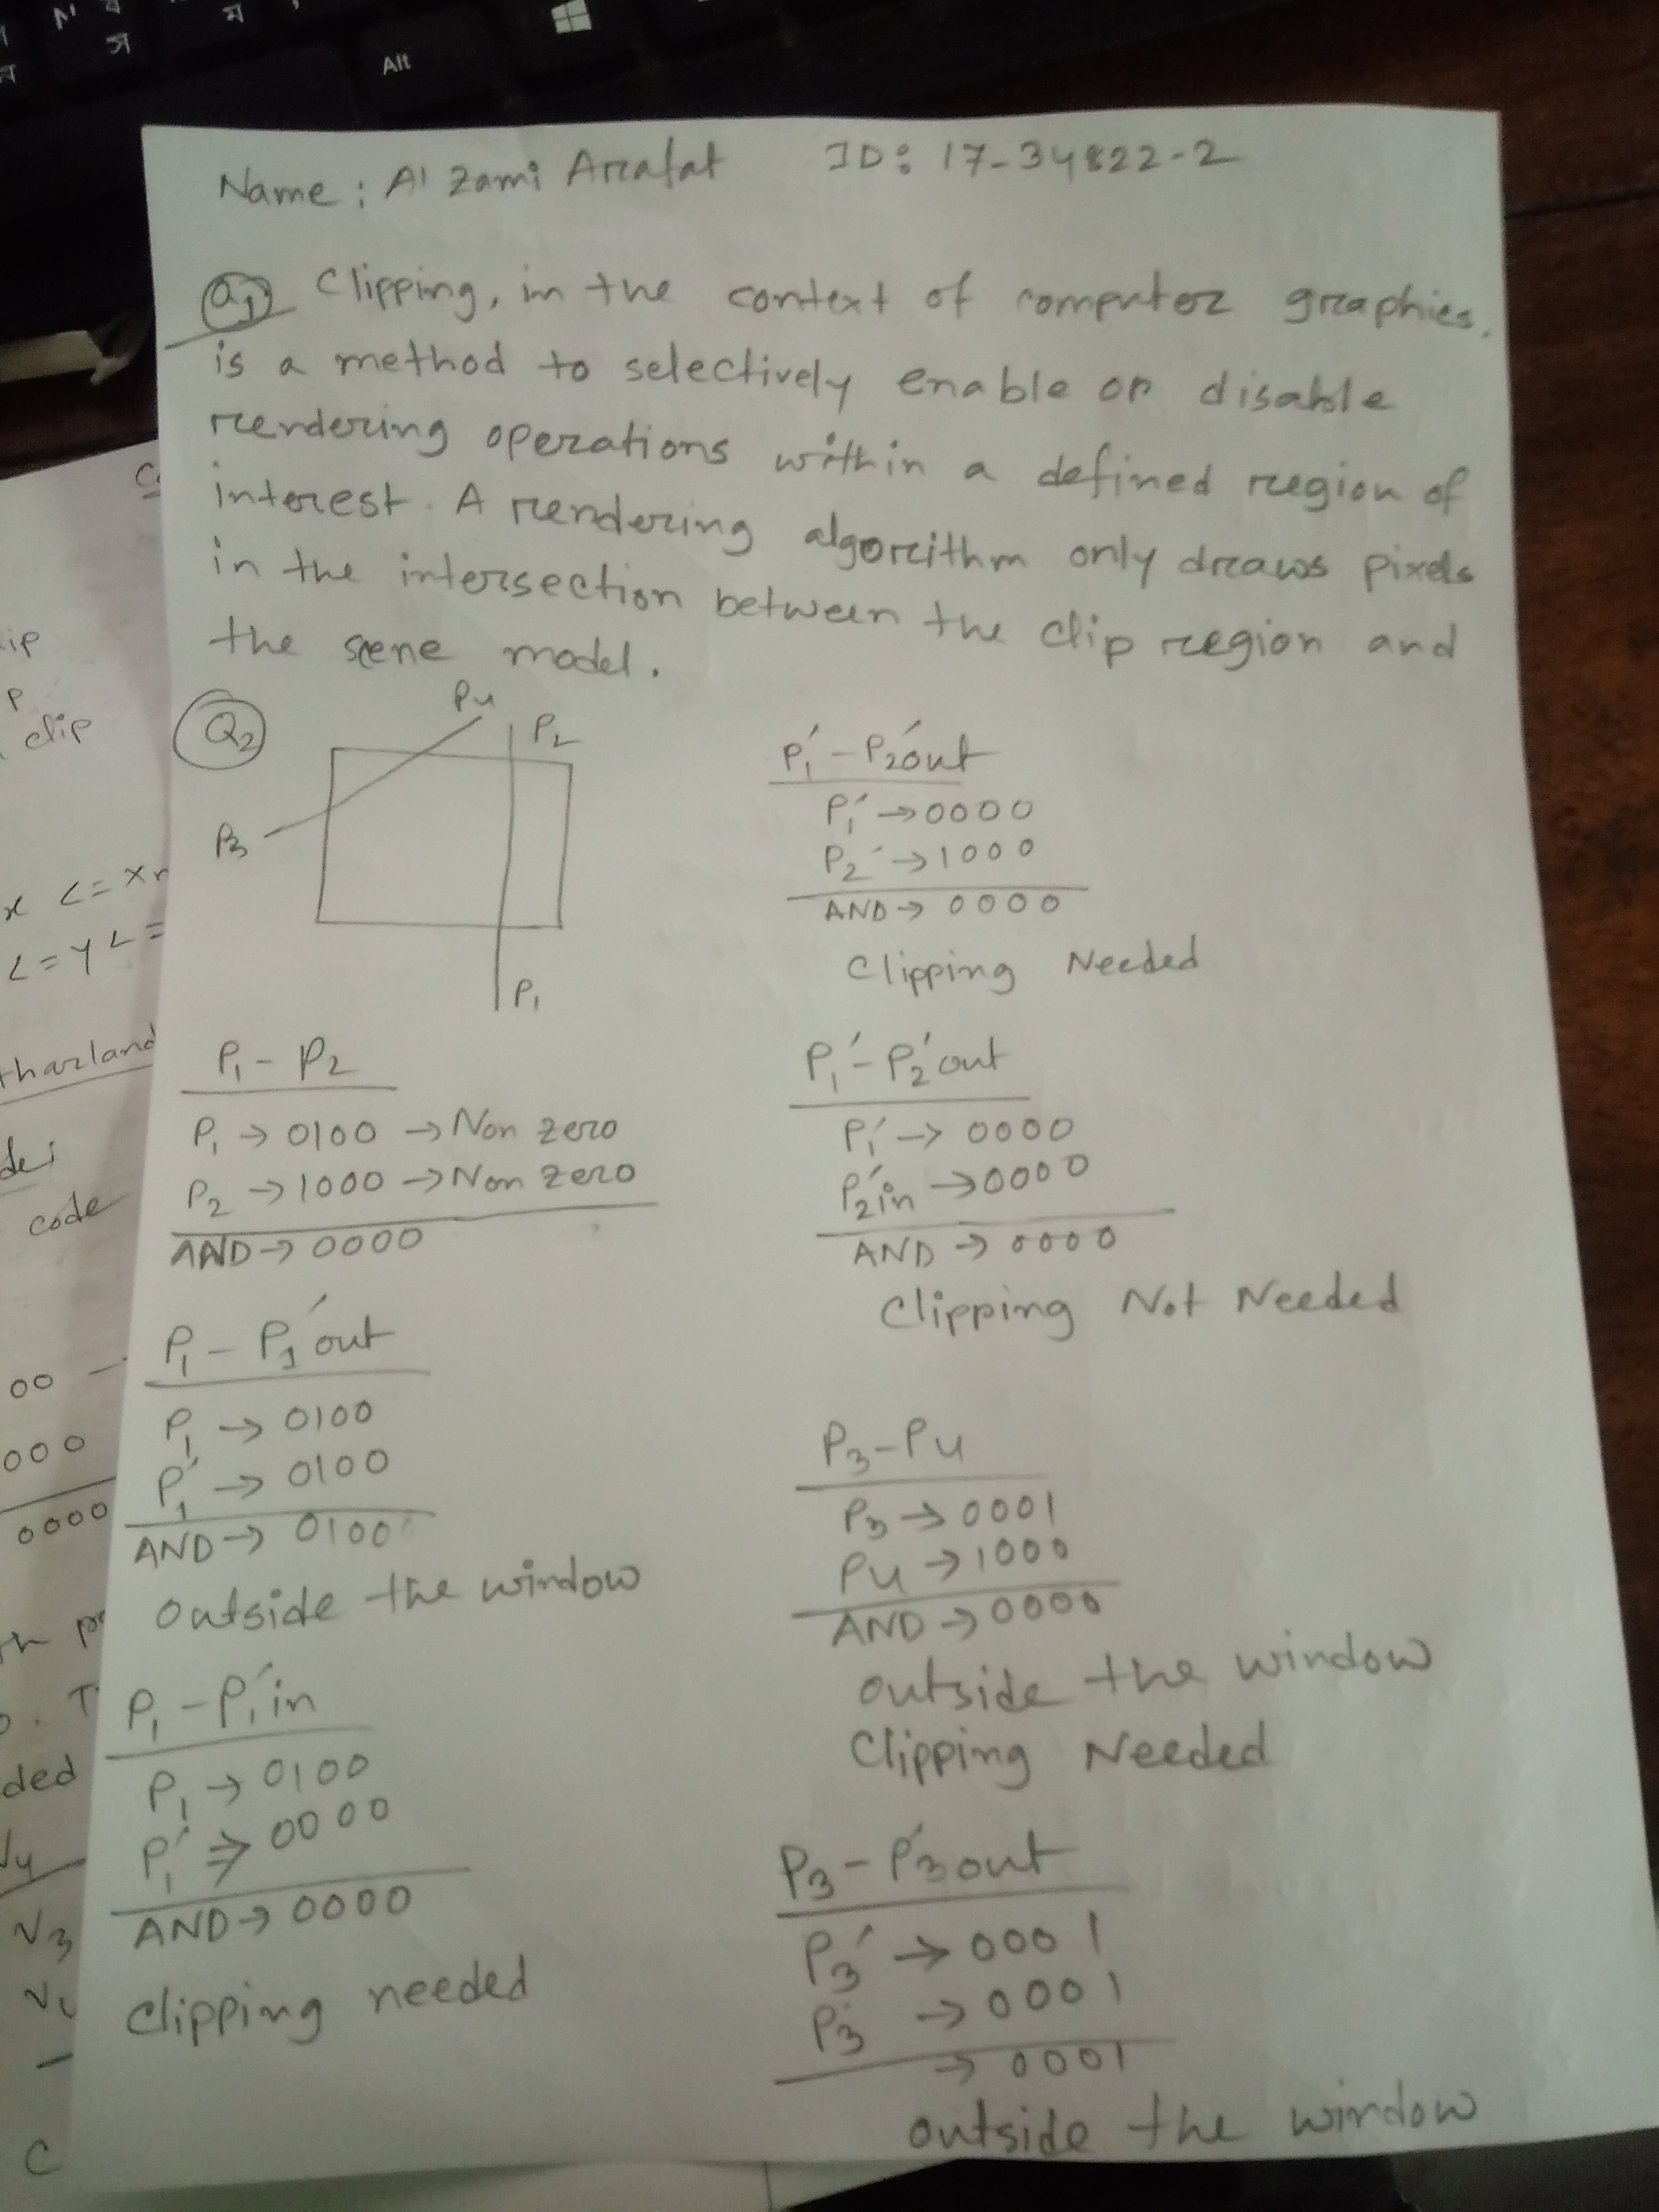 Alt
Name: Al Zami Arafat ID: 17-34822-2
Q1 Clipping, in the context of computer graphics,
is a method to selectively enable or disable
rendering operations within a defined region of
interest. A rendering algorithm only draws pixels
in the intersection between the clip region and
the scene model.
Q2
P4
P2
P3
P1
P1 - P2
P1 → 0100 → Non zero
P2 → 1000 → Non zero
AND → 0000
P1 - P1' out
P1 → 0100
P1' → 0100
AND → 0100
Outside the window
P1 - P1' in
P1 → 0100
P1' ⇒ 0000
AND → 0000
Clipping needed
P1' - P2' out
P1' → 0000
P2' → 1000
AND → 0000
Clipping Needed
P1' - P2' out
P1' → 0000
P2' in → 0000
AND → 0000
Clipping Not Needed
P3 - P4
P3 → 0001
P4 → 1000
AND → 0000
Outside the window
Clipping Needed
P3 - P3' out
P3' → 0001
P3 → 0001
→ 0001
Outside the window
clip
code
0000